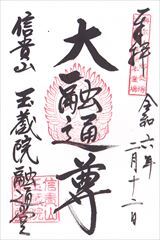 奉拝
令和六年二月十二日
大融通尊
信貴山
玉蔵院融通堂
信貴山
玉蔵院